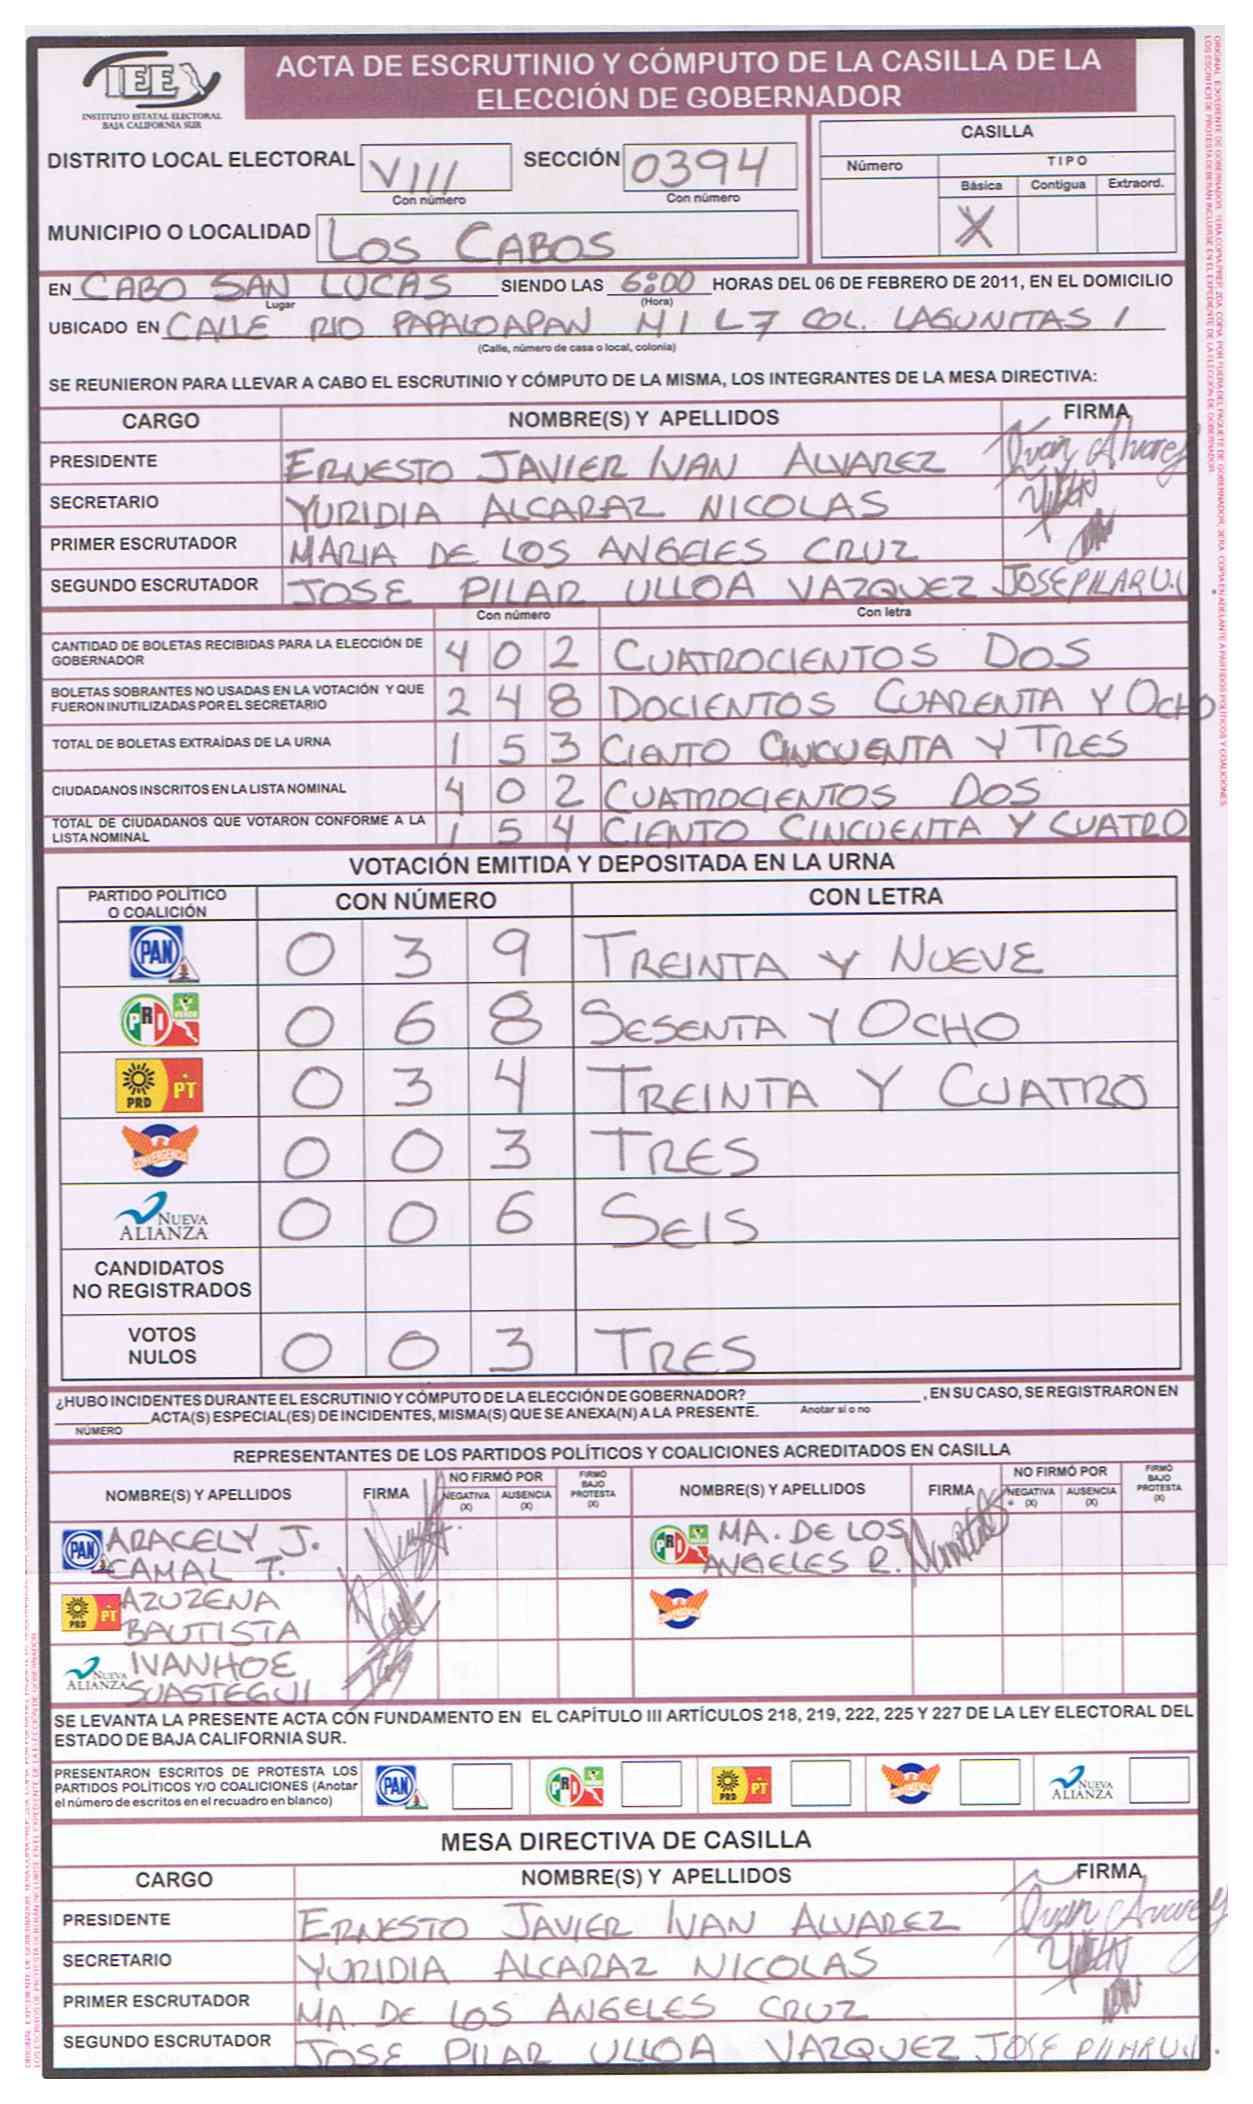 IEE
INSTITUTO ESTATAL ELECTORAL
BAJA CALIFORNIA SUR
ACTA DE ESCRUTINIO Y CÓMPUTO DE LA CASILLA DE LA
ELECCIÓN DE GOBERNADOR
DISTRITO LOCAL ELECTORAL VIII SECCIÓN 0394
Con número Con número
MUNICIPIO O LOCALIDAD LOS CABOS
CASILLA
Número TIPO
Básica Contigua Extraord.
X
EN CABO SAN LUCAS SIENDO LAS 6:00 HORAS DEL 06 DE FEBRERO DE 2011, EN EL DOMICILIO
Lugar (Hora)
UBICADO EN CALLE RIO PAPALOAPAN M1 L7 COL. LAGUNITAS 1
(Calle, número de casa o local, colonia)
SE REUNIERON PARA LLEVAR A CABO EL ESCRUTINIO Y CÓMPUTO DE LA MISMA, LOS INTEGRANTES DE LA MESA DIRECTIVA:
CARGO NOMBRE(S) Y APELLIDOS FIRMA
PRESIDENTE ERNESTO JAVIER IVAN ALVAREZ Ivan Alvarez
SECRETARIO YURIDIA ALCARAZ NICOLAS
PRIMER ESCRUTADOR MARIA DE LOS ANGELES CRUZ
SEGUNDO ESCRUTADOR JOSE PILAR ULLOA VAZQUEZ JOSE PILAR U.V.
Con número Con letra
CANTIDAD DE BOLETAS RECIBIDAS PARA LA ELECCIÓN DE
GOBERNADOR 402 CUATROCIENTOS DOS
BOLETAS SOBRANTES NO USADAS EN LA VOTACIÓN Y QUE
FUERON INUTILIZADAS POR EL SECRETARIO 248 DOCIENTOS CUARENTA Y OCHO
TOTAL DE BOLETAS EXTRAÍDAS DE LA URNA 153 CIENTO CINCUENTA Y TRES
CIUDADANOS INSCRITOS EN LA LISTA NOMINAL 402 CUATROCIENTOS DOS
TOTAL DE CIUDADANOS QUE VOTARON CONFORME A LA
LISTA NOMINAL 154 CIENTO CINCUENTA Y CUATRO
VOTACIÓN EMITIDA Y DEPOSITADA EN LA URNA
PARTIDO POLÍTICO
O COALICIÓN CON NÚMERO CON LETRA
PAN 0 3 9 TREINTA Y NUEVE
PRI VERDE 0 6 8 SESENTA Y OCHO
PRD PT 0 3 4 TREINTA Y CUATRO
CONVERGENCIA 0 0 3 TRES
NUEVA ALIANZA 0 0 6 SEIS
CANDIDATOS
NO REGISTRADOS
VOTOS
NULOS 0 0 3 TRES
¿HUBO INCIDENTES DURANTE EL ESCRUTINIO Y CÓMPUTO DE LA ELECCIÓN DE GOBERNADOR? , EN SU CASO, SE REGISTRARON EN
ACTA(S) ESPECIAL(ES) DE INCIDENTES, MISMA(S) QUE SE ANEXA(N) A LA PRESENTE. Anotar sí o no
NÚMERO
REPRESENTANTES DE LOS PARTIDOS POLÍTICOS Y COALICIONES ACREDITADOS EN CASILLA
NOMBRE(S) Y APELLIDOS FIRMA NO FIRMÓ POR NEGATIVA (X) AUSENCIA (X) FIRMÓ BAJO PROTESTA (X) NOMBRE(S) Y APELLIDOS FIRMA NO FIRMÓ POR NEGATIVA (X) AUSENCIA (X) FIRMÓ BAJO PROTESTA (X)
PAN ARACELY J. PRI MA. DE LOS
CAMAL T. ANGELES R.
PRD PT AZUZENA
BAUTISTA
NUEVA ALIANZA IVANHOE
SUASTEGUI
SE LEVANTA LA PRESENTE ACTA CON FUNDAMENTO EN EL CAPÍTULO III ARTÍCULOS 218, 219, 222, 225 Y 227 DE LA LEY ELECTORAL DEL
ESTADO DE BAJA CALIFORNIA SUR.
PRESENTARON ESCRITOS DE PROTESTA LOS
PARTIDOS POLÍTICOS Y/O COALICIONES (Anotar
el número de escritos en el recuadro en blanco)
PAN PRI PRD PT NUEVA ALIANZA
MESA DIRECTIVA DE CASILLA
CARGO NOMBRE(S) Y APELLIDOS FIRMA
PRESIDENTE ERNESTO JAVIER IVAN ALVAREZ Ivan Alvarez
SECRETARIO YURIDIA ALCARAZ NICOLAS
PRIMER ESCRUTADOR MA. DE LOS ANGELES CRUZ
SEGUNDO ESCRUTADOR JOSE PILAR ULLOA VAZQUEZ JOSE PILAR U.V.